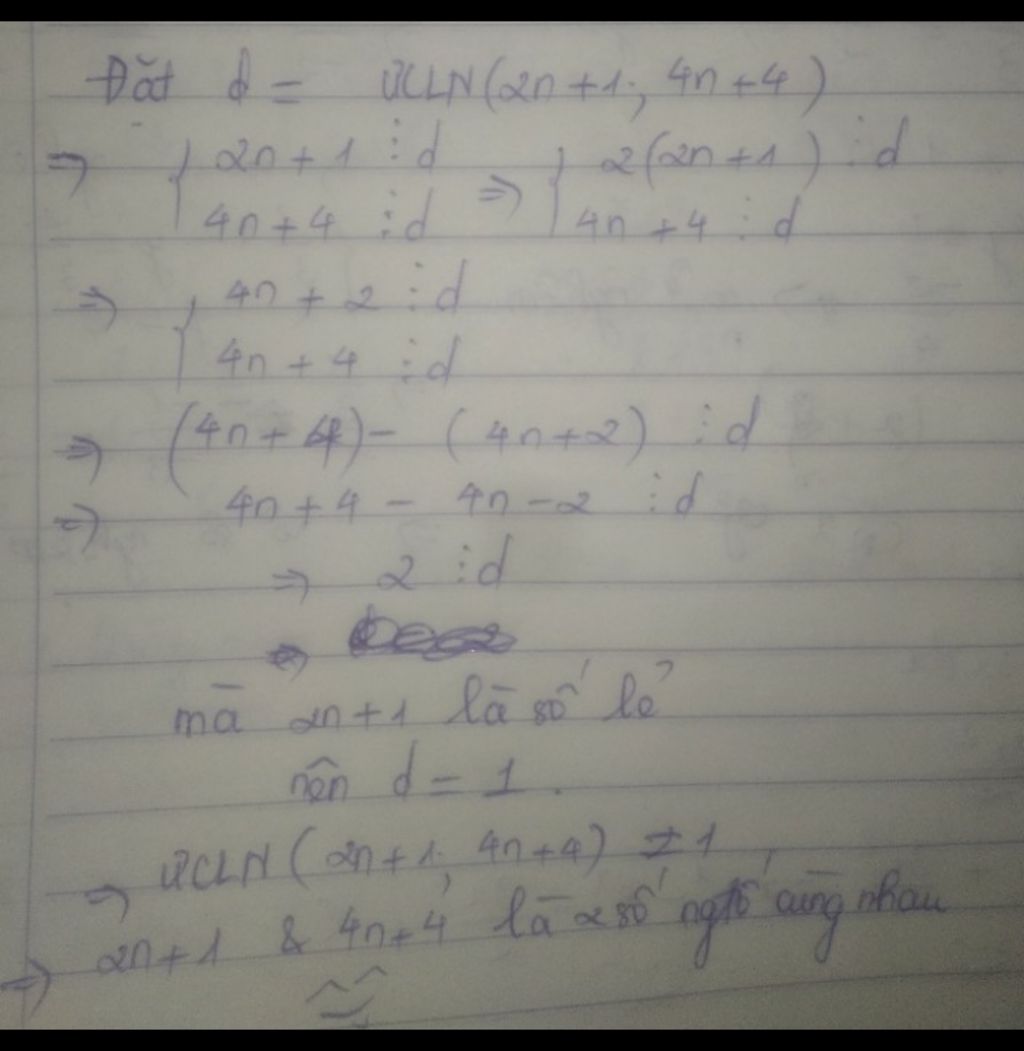 Đặt d = ƯCLN(2n+1; 4n+4)
⇒ { 2n+1 ⋮ d ⇒ { 2(2n+1) ⋮ d
4n+4 ⋮ d 4n+4 ⋮ d
⇒ { 4n+2 ⋮ d
4n+4 ⋮ d
⇒ (4n+4) - (4n+2) ⋮ d
⇒ 4n+4 - 4n-2 ⋮ d
⇒ 2 ⋮ d
⇒
mà 2n+1 là số lẻ
nên d = 1.
⇒ ƯCLN(2n+1; 4n+4) = 1
⇒ 2n+1 & 4n+4 là 2 số ngtố cùng nhau